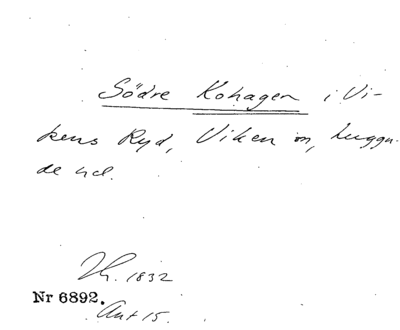 Södre Kohagen i Vi-
kens Ryd, Viken sn, Luggu-
de hd.
Th. 1832
Nr 6892.
Ant 15.